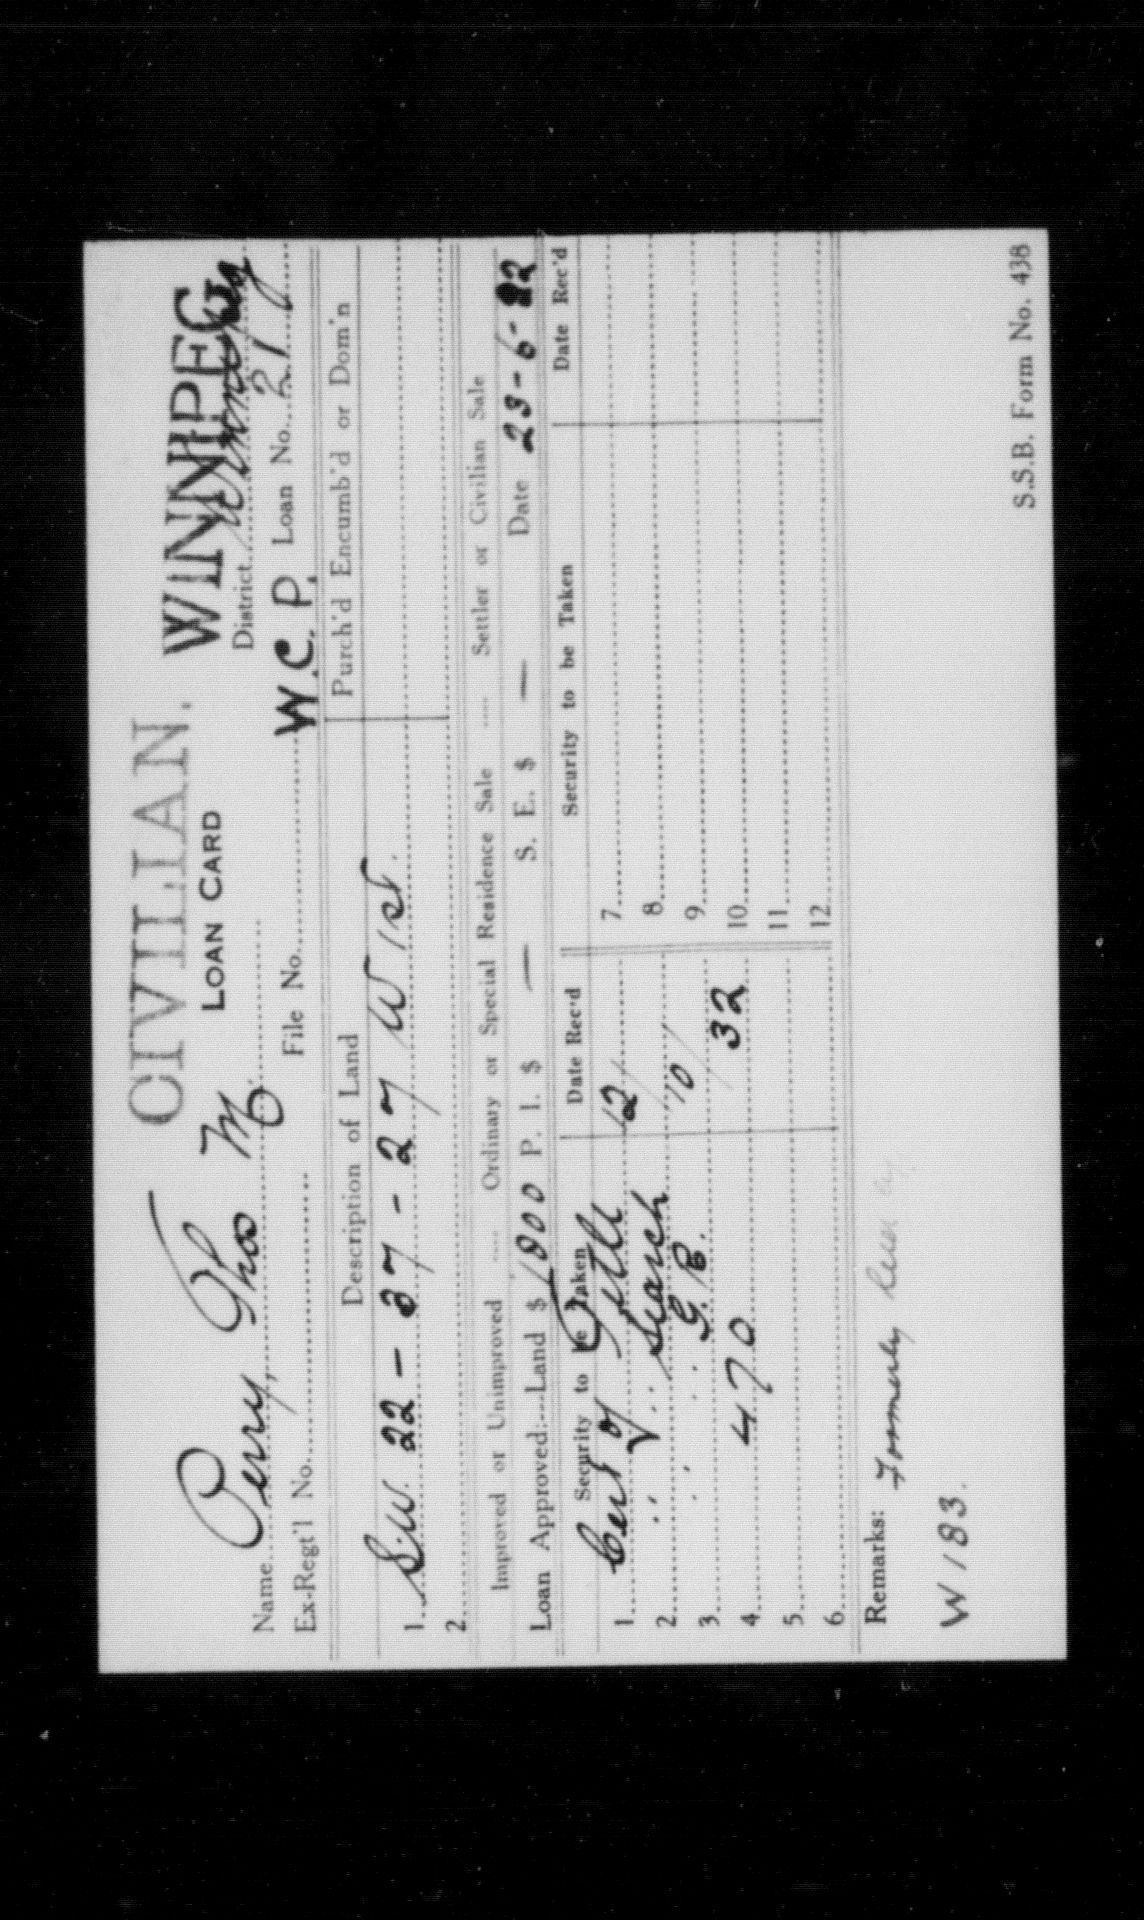 CIVILIAN. WINNIPEG
LOAN CARD
Name Perry, Thos M District Winnipeg
Ex-Regt'l No. File No. W.C.P. Loan No. 217
Description of Land Purch'd Encumb'd or Dom'n
1. S.W. 22 - 37 - 27 W 1st.
2.
Improved or Unimproved .... Ordinary or Special Residence Sale .... Settler or Civilian Sale
Loan Approved:—Land $ 1800 P. I. $ — S. E. $ — Date 23-6-22
Security to be Taken Date Rec'd Security to be Taken Date Rec'd
1. Cert of Title 12/ 7.
2. " " Search 10/ 8.
3. " " S.B. 9.
4. 470 32 10.
5. 11.
6. 12.
Remarks: Formerly
W 183.
S.S.B. Form No. 438